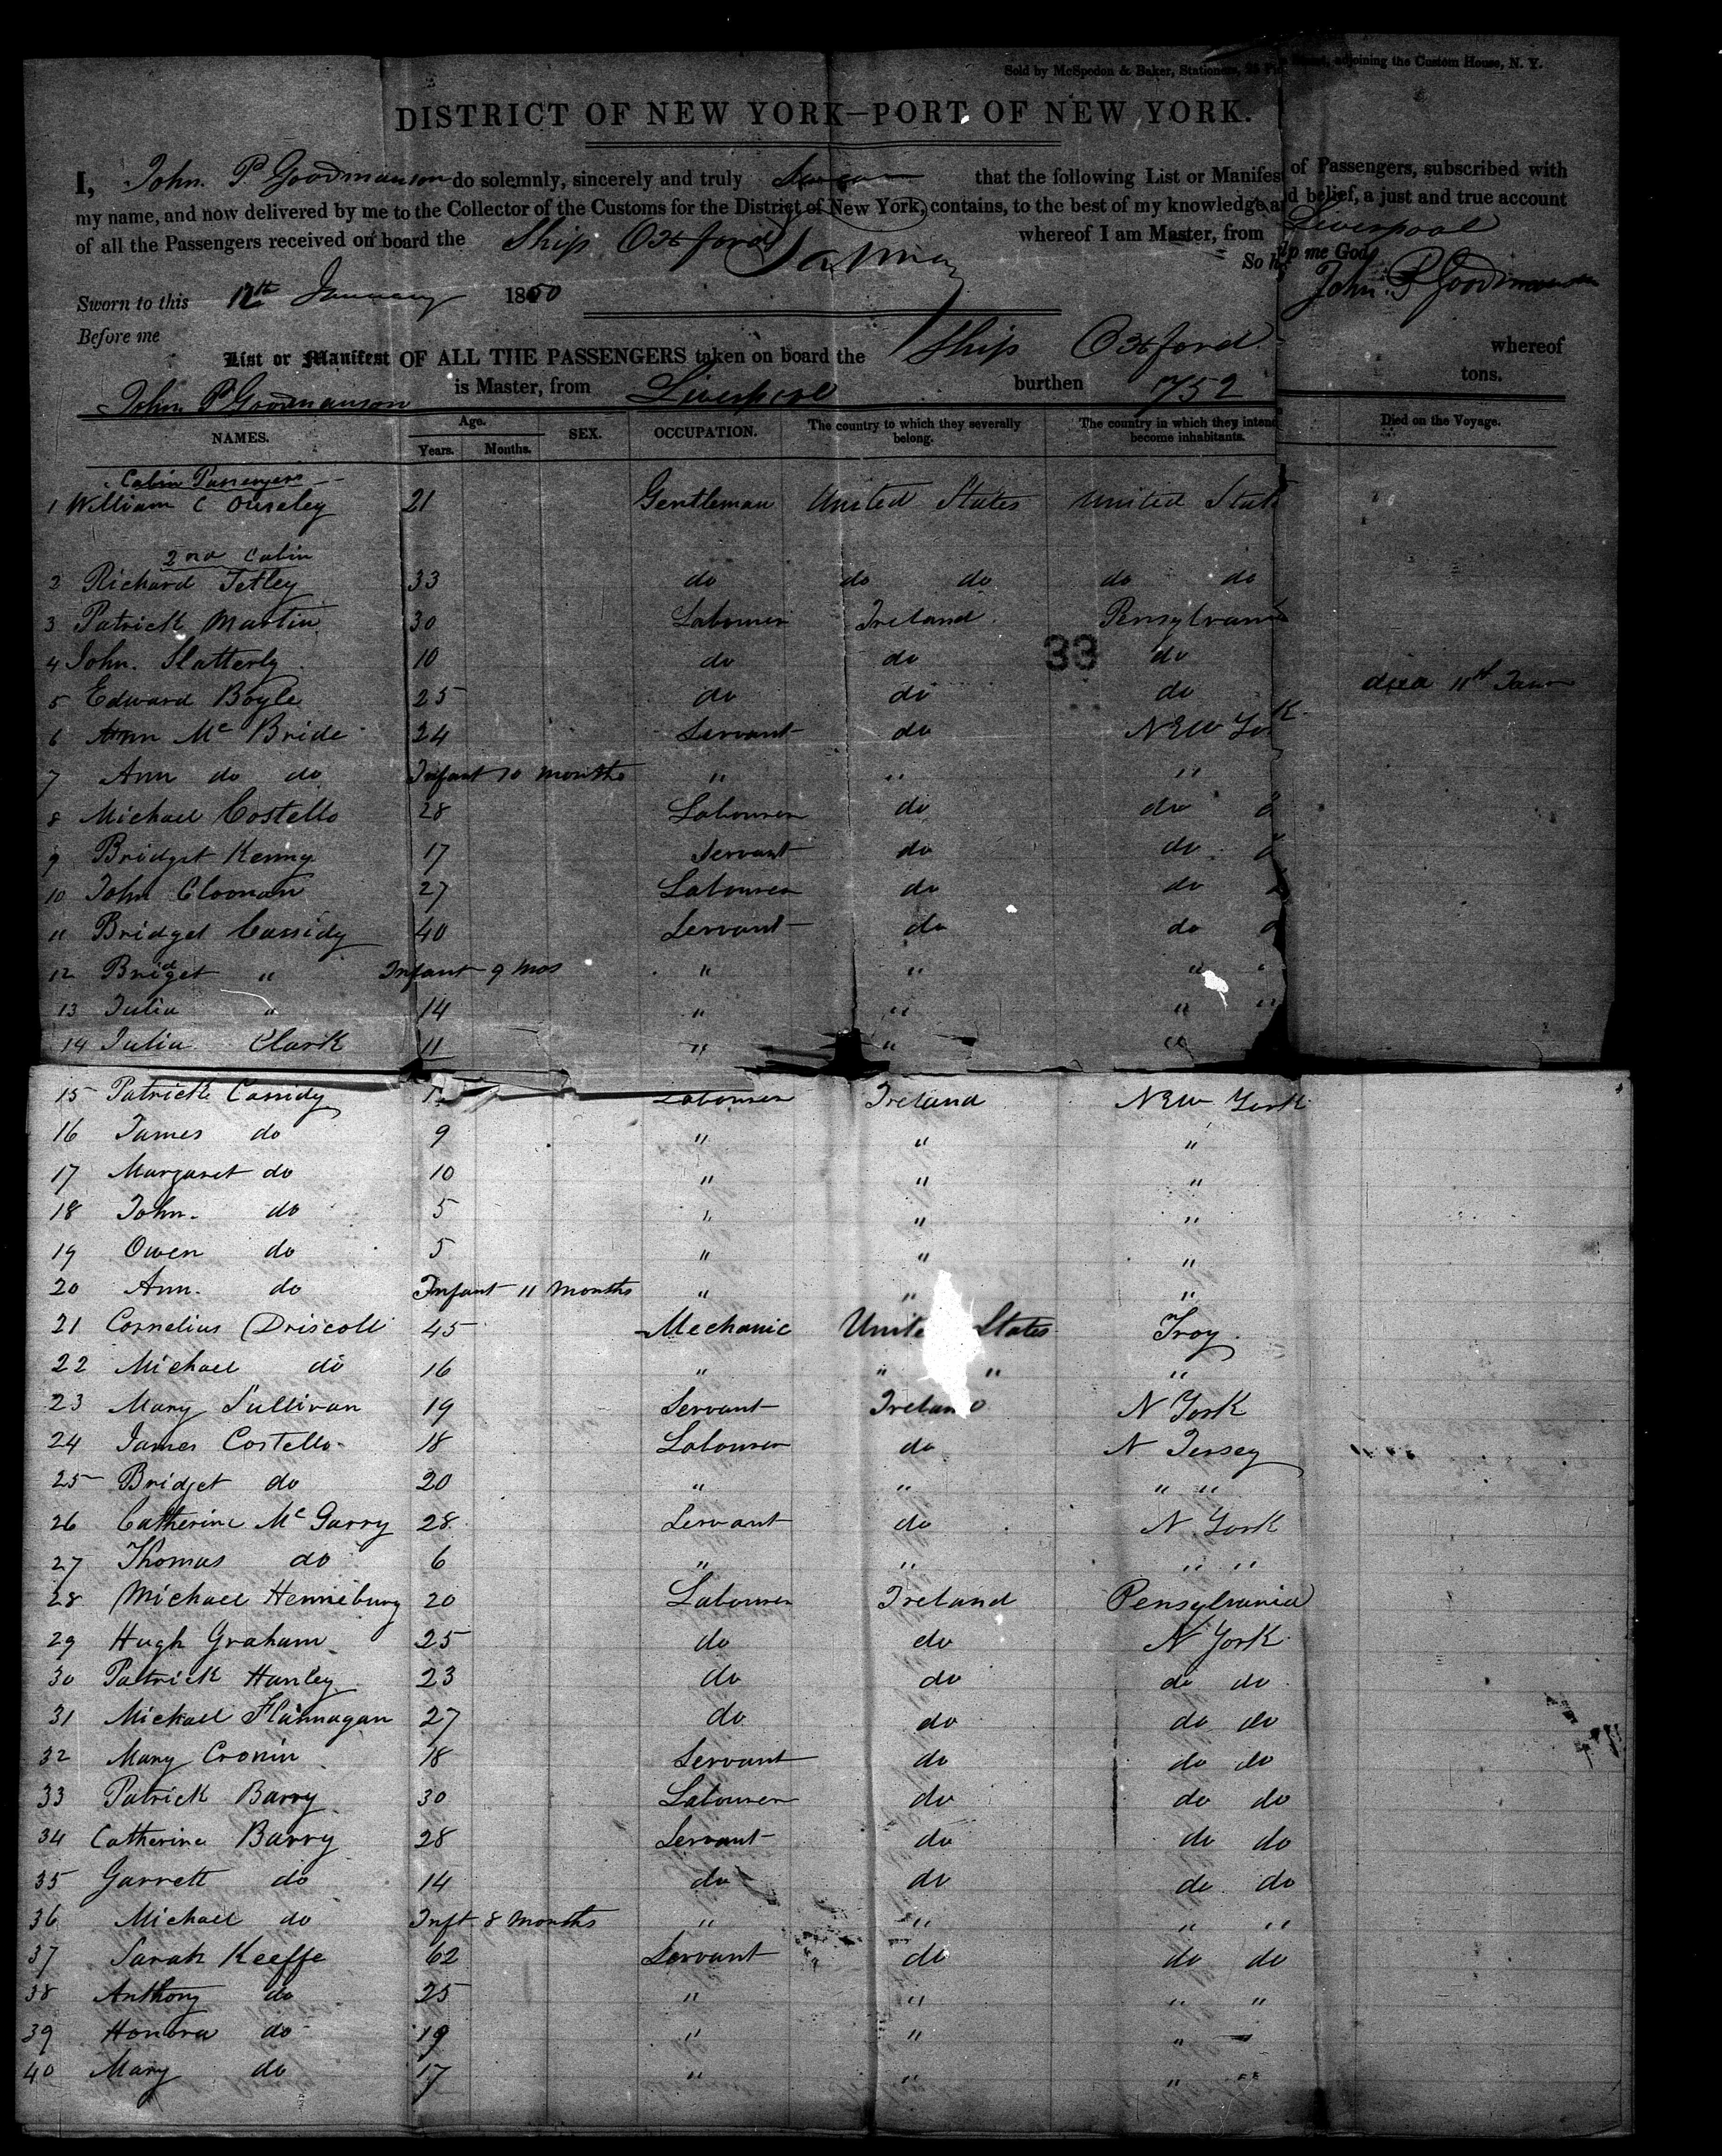 Sold by McSpedon & Baker, Stationers, 25 Street, adjoining the Custom House, N. Y.
DISTRICT OF NEW YORK—PORT OF NEW YORK.
I, John. P. Goodmanson do solemnly, sincerely and truly Swear that the following List or Manifest of Passengers, subscribed with
my name, and now delivered by me to the Collector of the Customs for the District of New York, contains, to the best of my knowledge and belief, a just and true account
of all the Passengers received on board the Ship Oxford whereof I am Master, from Liverpool
So help me God
Sworn to this 12th January 1850 John. P Goodmanson
Before me
List or Manifest OF ALL THE PASSENGERS taken on board the Ship Oxford whereof
John. P Goodmanson is Master, from Liverpool burthen 752 tons.
NAMES. Age. Years. Months. SEX. OCCUPATION. The country to which they severally belong. The country in which they intend become inhabitants. Died on the Voyage.
Cabin Passengers
1 William C Ouseley 21 Gentleman United States United Stat
2nd Cabin
2 Richard Tetley 33 do do do do do
3 Patrick Martin 30 Labourer Ireland. Pensylvan
4 John. Slatterly 10 do do do
33
5 Edward Boyle 25 do do do died 11th Jan
6 Ann Mc Bride 24 Servant do New York
7 Ann do do Infant 10 months " " "
8 Michael Costello 28 Labourer do do
9 Bridget Kenny 17 Servant do do
10 John Cloonan 27 Labourer do do
11 Bridget Cassidy 40 Servant do do
12 Bridget " Infant 9 mos " " " "
13 Julia " 14 " " " "
14 Julia Clark 11 " " "
15 Patrick Cassidy Labourer Ireland New York
16 James do 9 " " "
17 Margaret do 10 " " "
18 John. do 5 " " "
19 Owen do 5 " " "
20 Ann. do Infant 11 months " " "
21 Cornelius Driscoll 45 Mechanic United States Troy
22 Michael do 16 " " " "
23 Mary Sullivan 19 Servant Ireland N York
24 James Costello 18 Labourer do N Jersey
25 Bridget do 20 " " " "
26 Catherine Mc Garry 28 Servant do N York
27 Thomas do 6 " " " "
28 Michael Henneburg 20 Labourer Ireland Pensylvania
29 Hugh Graham 25 do do N York
30 Patrick Hanley 23 do do do do
31 Michael Flannagan 27 do do do do
32 Mary Cronin 18 Servant do do do
33 Patrick Barry 30 Labourer do do do
34 Catherine Barry 28 Servant do do do
35 Garrett do 14 do do do do
36 Michael do Inft 8 months " " " "
37 Sarah Keeffe 62 Servant do do do
38 Anthony do 25 " " " "
39 Honora do 19 " " "
40 Mary do 17 " " " "